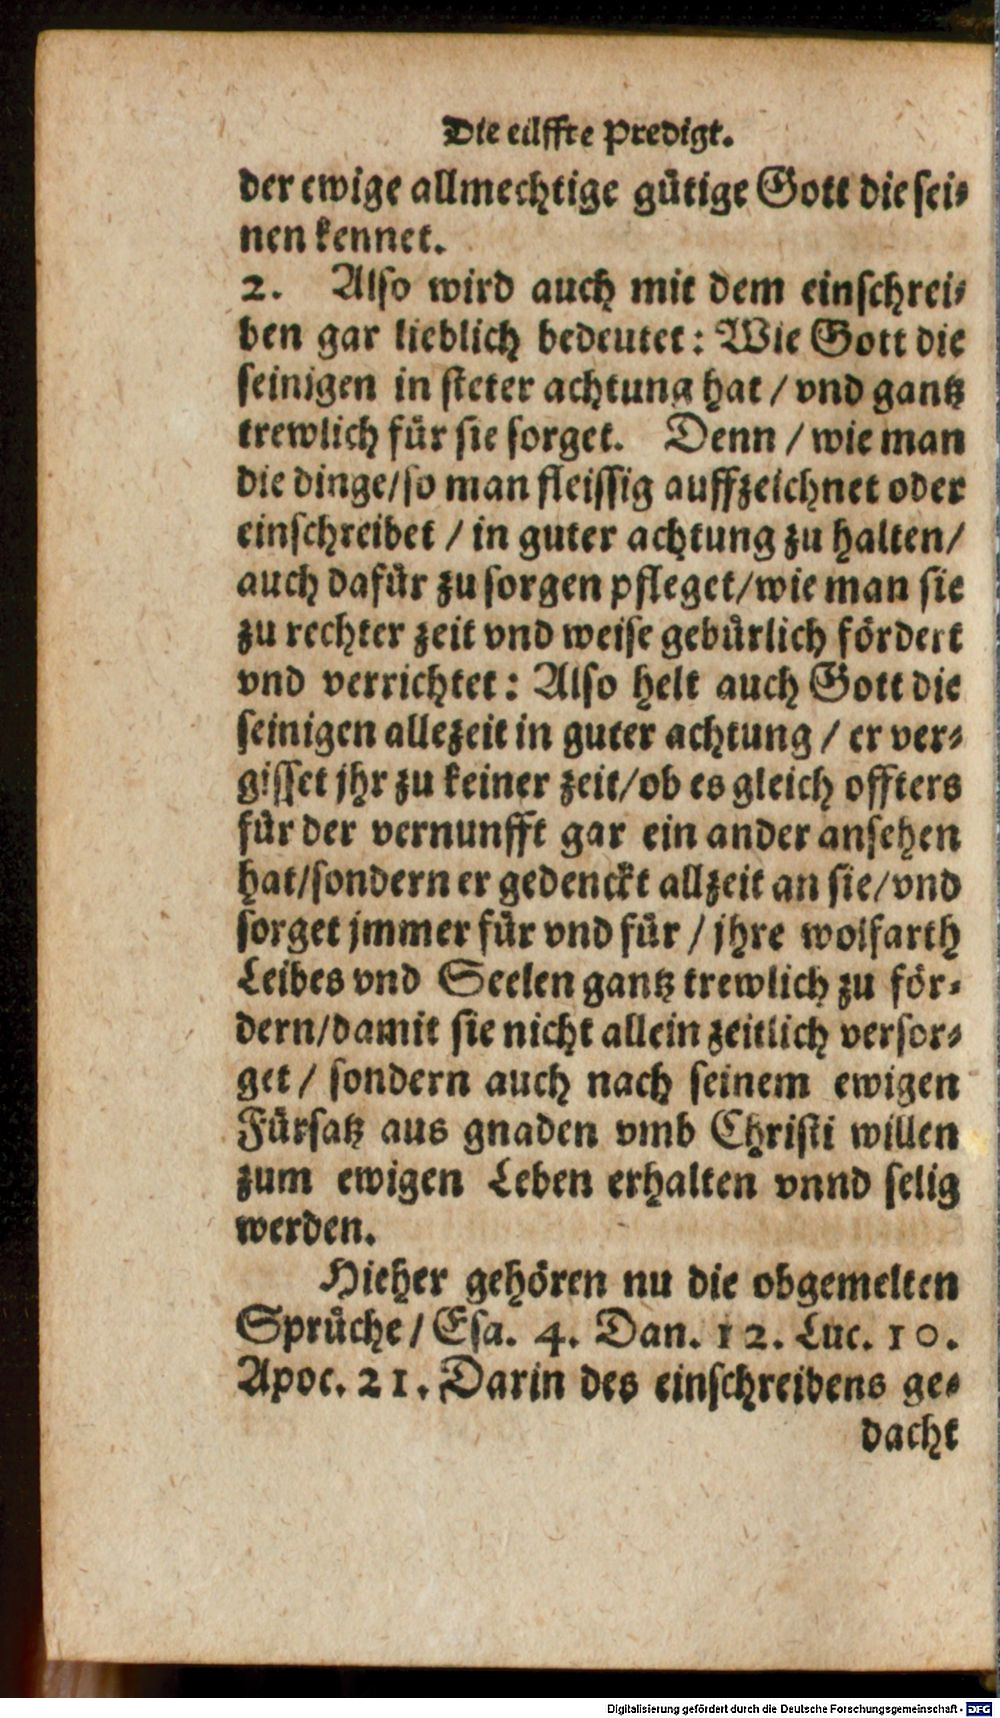 Die eilffte Predigt.
der ewige allmechtige gütige Gott die sei-
nen kennet.
2. Also wird auch mit dem einschrei-
ben gar lieblich bedeutet: Wie Gott die
seinigen in steter achtung hat / vnd gantz
trewlich für sie sorget. Denn / wie man
die dinge/so man fleissig auffzeichnet oder
einschreibet / in guter achtung zu halten/
auch dafür zu sorgen pfleget/wie man sie
zu rechter zeit vnd weise gebürlich fördert
vnd verrichtet: Also helt auch Gott die
seinigen allezeit in guter achtung / er ver-
gisset jhr zu keiner zeit/ob es gleich offters
für der vernunfft gar ein ander ansehen
hat/sondern er gedenckt allzeit an sie/vnd
sorget jmmer für vnd für / jhre wolfarth
Leibes vnd Seelen gantz trewlich zu för-
dern/damit sie nicht allein zeitlich versor-
get / sondern auch nach seinem ewigen
Fürsatz aus gnaden vmb Christi willen
zum ewigen Leben erhalten vnnd selig
werden.
Hieher gehören nu die obgemelten
Sprüche / Esa. 4. Dan. 12. Luc. 10.
Apoc. 21. Darin des einschreibens ge-
dacht
Digitalisierung gefördert durch die Deutsche Forschungsgemeinschaft - DFG